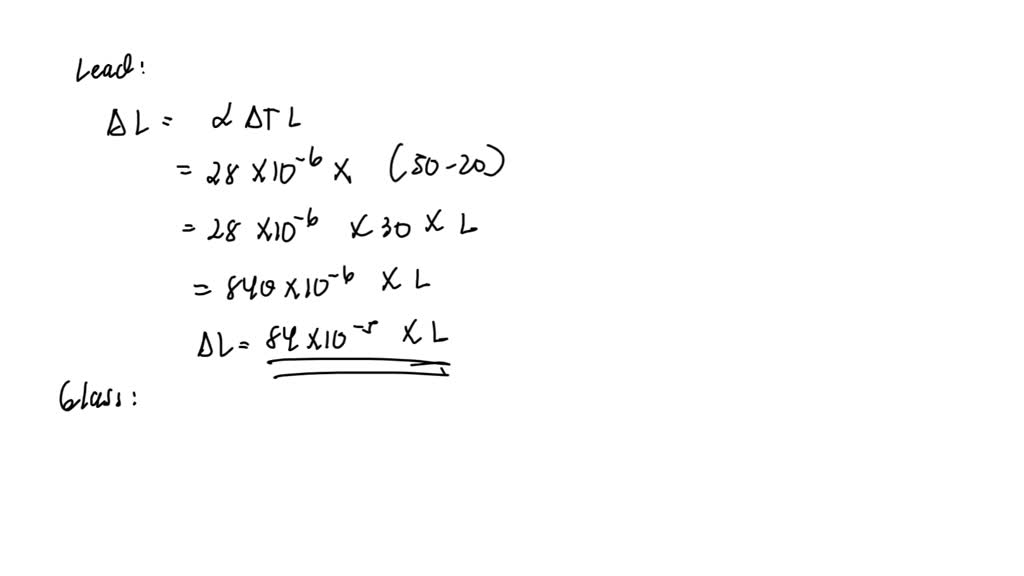 Lead:
ΔL = α ΔT L
= 28 × 10⁻⁶ × (50-20)
= 28 × 10⁻⁶ × 30 × L
= 840 × 10⁻⁶ × L
ΔL = 84 × 10⁻⁵ × L
Glass: